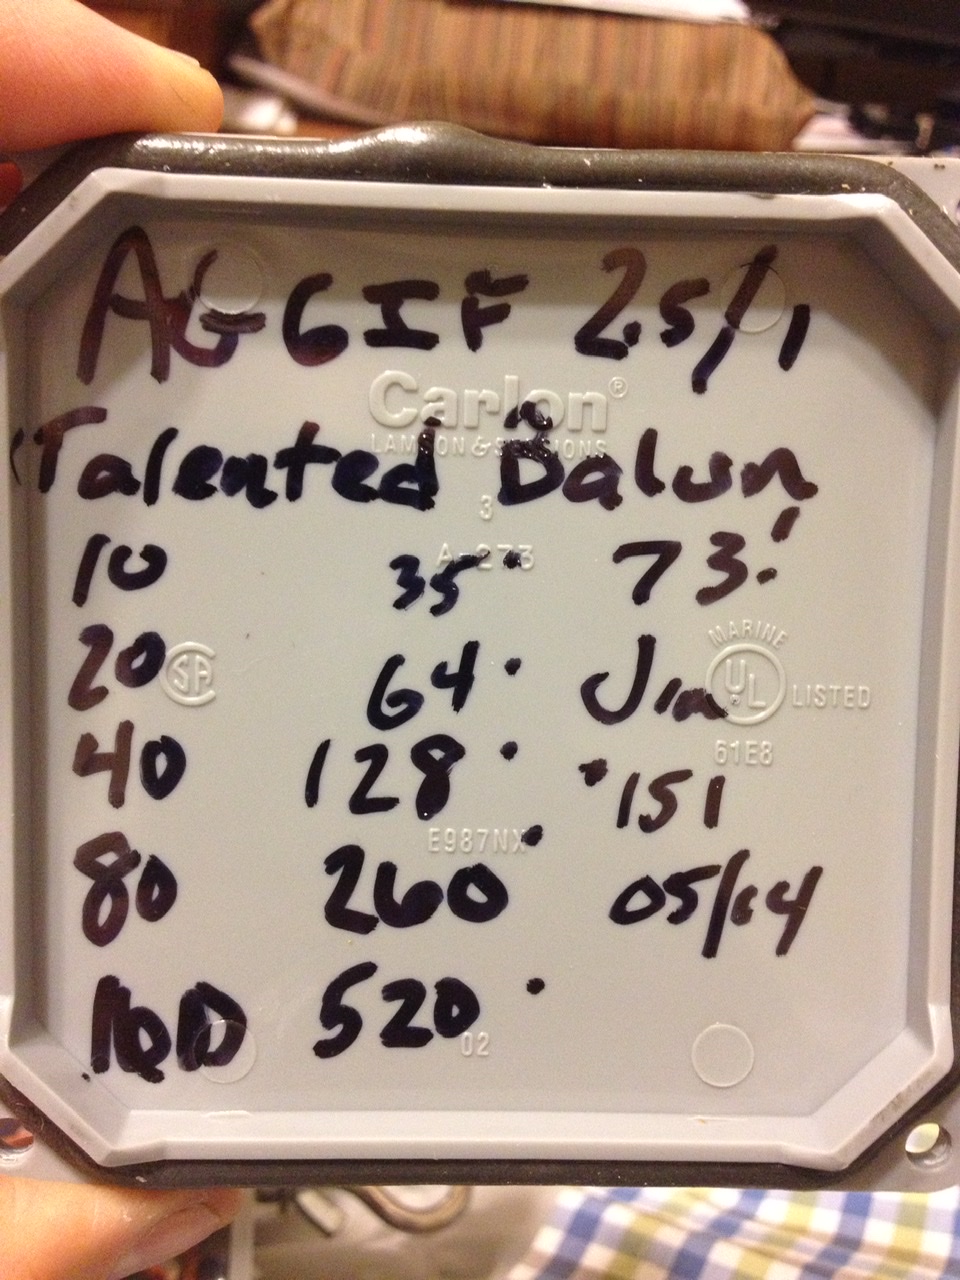 AG6IF 25/1
Carlon®
LAMSON & SESSIONS
Talented Balun
3
A-273
10 35' 73!
MARINE
20 64' Jim
SA UL LISTED
61E8
40 128' '151
E987NX
80 260' 05/14
160 520'
02